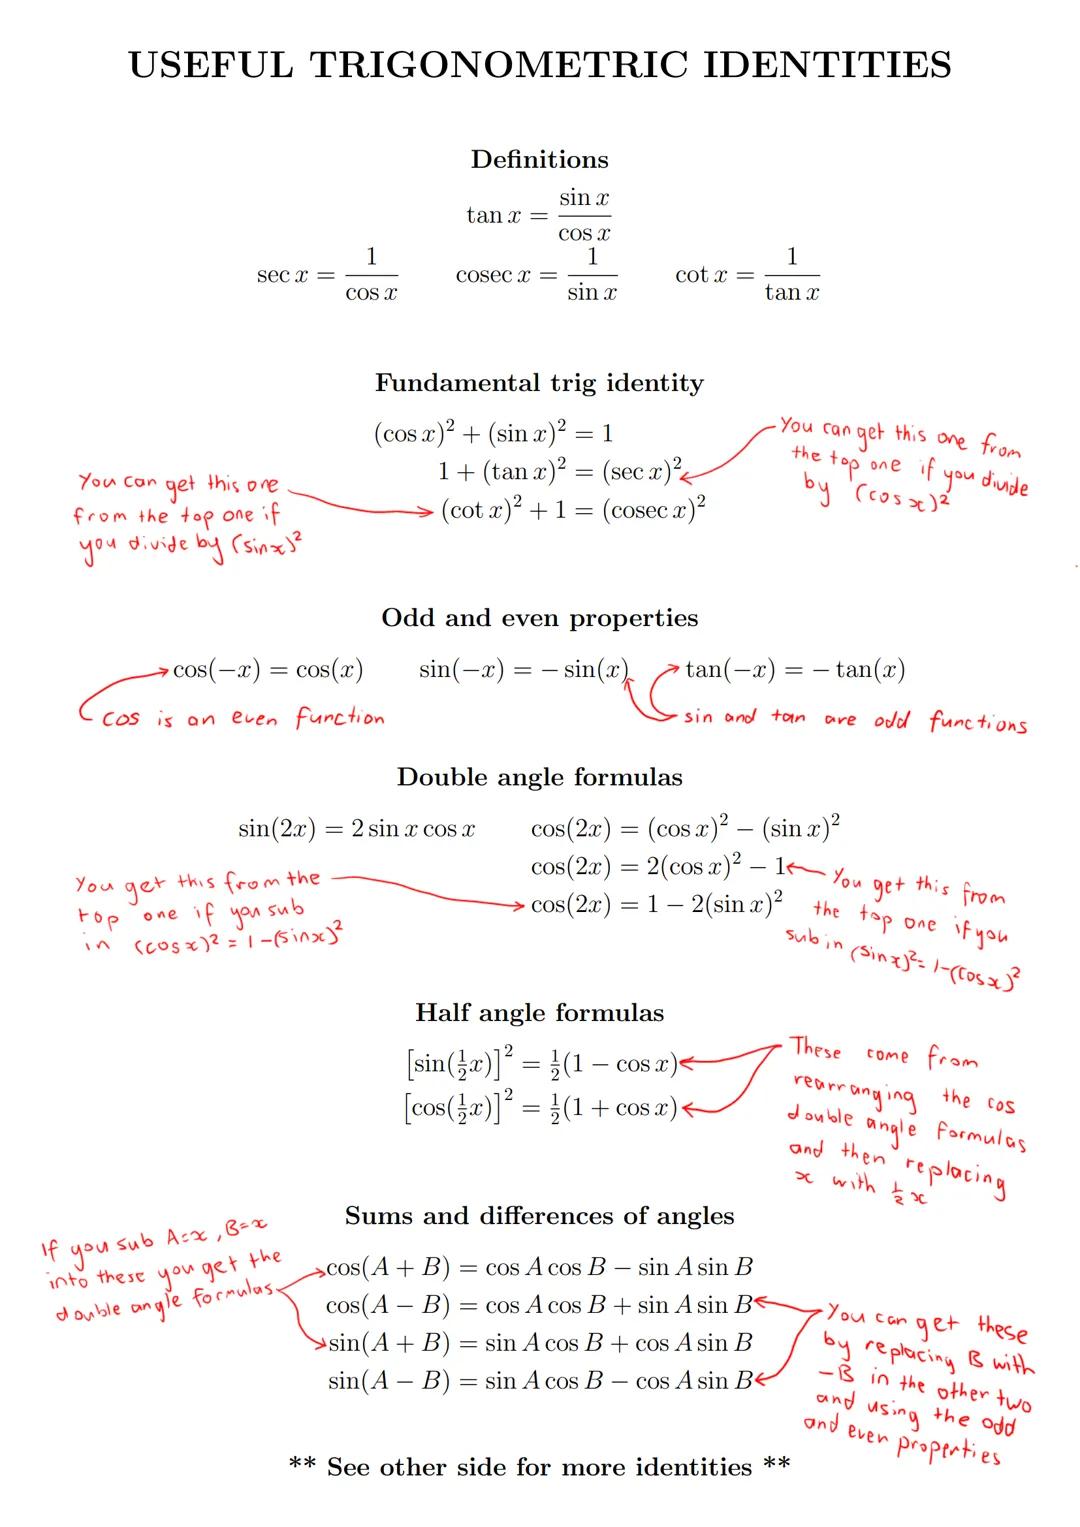 USEFUL TRIGONOMETRIC IDENTITIES
Definitions
tan x = sin x / cos x
sec x = 1 / cos x    cosec x = 1 / sin x    cot x = 1 / tan x
Fundamental trig identity
(cos x)² + (sin x)² = 1
1 + (tan x)² = (sec x)²
(cot x)² + 1 = (cosec x)²
You can get this one from
the top one if you divide
by (cos x)²
You can get this one
from the top one if
you divide by (sin x)²
Odd and even properties
cos(−x) = cos(x)    sin(−x) = − sin(x)    tan(−x) = − tan(x)
cos is an even function
sin and tan are odd functions
Double angle formulas
sin(2x) = 2 sin x cos x    cos(2x) = (cos x)² − (sin x)²
cos(2x) = 2(cos x)² − 1
cos(2x) = 1 − 2(sin x)²
You get this from the
top one if you sub
in (cos x)² = 1 − (sin x)²
You get this from
the top one if you
sub in (sin x)² = 1 − (cos x)²
Half angle formulas
[sin(½x)]² = ½(1 − cos x)
[cos(½x)]² = ½(1 + cos x)
These come from
rearranging the cos
double angle formulas
and then replacing
x with ½ x
Sums and differences of angles
If you sub A=x, B=x
into these you get the
double angle formulas
cos(A + B) = cos A cos B − sin A sin B
cos(A − B) = cos A cos B + sin A sin B
sin(A + B) = sin A cos B + cos A sin B
sin(A − B) = sin A cos B − cos A sin B
You can get these
by replacing B with
−B in the other two
and using the odd
and even properties
** See other side for more identities **